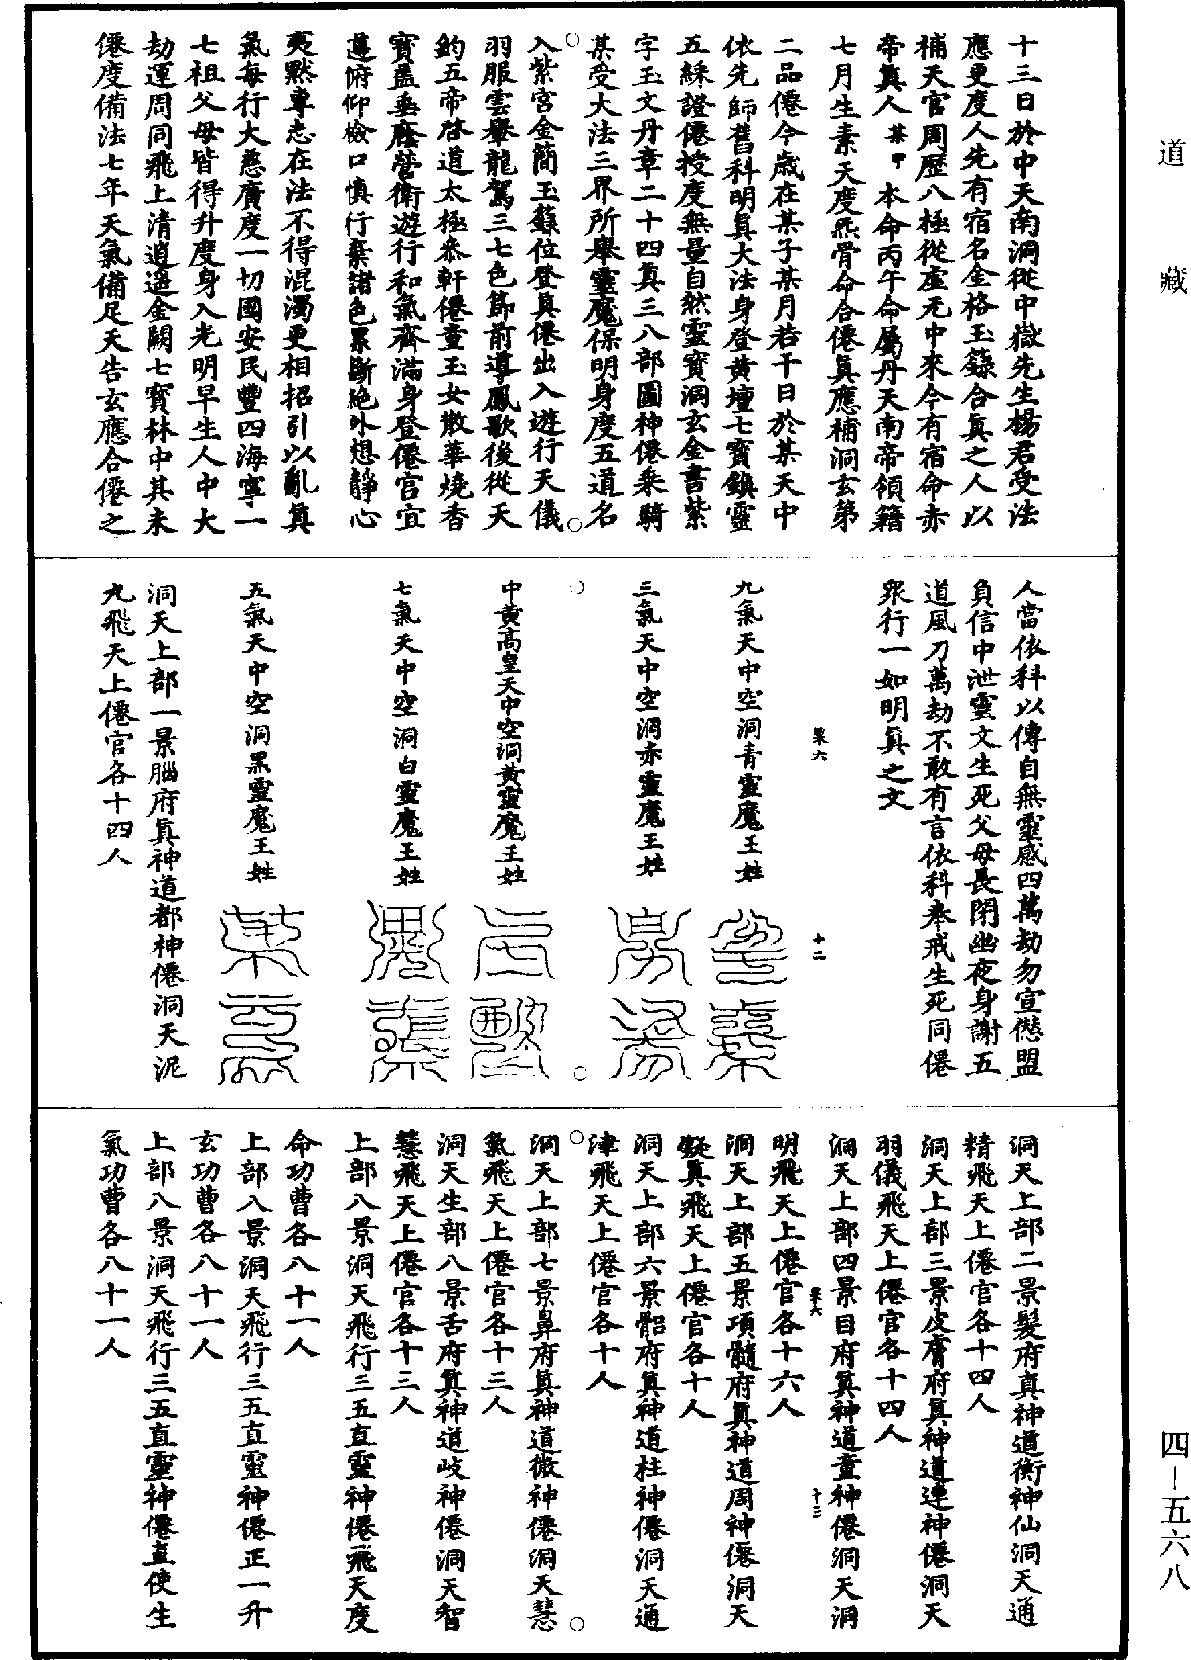 道藏
十三日於中天南洞從中嶽先生楊君受法
應更度人先有宿名金格玉籙合真之人以
補天官周歷八極從虛无中來今有宿命赤
帝真人某甲本命丙午命屬丹天南帝領籍
七月生素天度炁骨命合僊真應補洞玄第
二品僊今歲在某子某月若干日於某天中
依先師舊科明真大法身登黄壇七寶鎮靈
五綵證僊授度無量自然靈寶洞玄金書紫
字玉文丹章二十四真三八部圖神僊乘騎
某受大法三界所舉靈魔保明身度五道名
入紫宮金簡玉籙位登真僊出入遊行天儀
羽服雲轝龍駕三七色節前導鳳歌後從天
鈞五帝啓道太極參軒僊童玉女散華燒香
寶蓋垂廕營衛遊行和氣齊滿身登僊官宜
遵俯仰檢口慎行棄諸色累斷絶外想靜心
夷默專志在法不得混濁更相招引以亂真
氣每行大慈廣度一切國安民豐四海寧一
七祖父母皆得升度身入光明早生人中大
劫運周同飛上清逍遥金闕七寶林中其未
僊度備法七年天氣備足天告玄應合僊之
人當依科以傳自無靈感四萬劫勿宣僭盟
負信中泄靈文生死父母長閉幽夜身謝五
道風刀萬劫不敢有言依科奉戒生死同僊
衆行一如明真之文
九氣天中空洞青靈魔王姓
三氣天中空洞赤靈魔王姓
中黄高皇天中空洞黄靈魔王姓
七氣天中空洞白靈魔王姓
五氣天中空洞黑靈魔王姓
洞天上部一景腦府真神道都神僊洞天泥
丸飛天上僊官各十四人
十二
洞天上部二景髮府真神道衡神仙洞天通
精飛天上僊官各十四人
洞天上部三景皮膚府真神道連神僊洞天
羽儀飛天上僊官各十四人
洞天上部四景目府真神道童神僊洞天洞
明飛天上僊官各十六人
十三
洞天上部五景項髓府真神道周神僊洞天
凝真飛天上僊官各十人
洞天上部六景𦛗府真神道柱神僊洞天通
津飛天上僊官各十人
洞天上部七景鼻府真神道微神僊洞天慧
氣飛天上僊官各十三人
洞天生部八景舌府真神道岐神僊洞天智
慧飛天上僊官各十三人
上部八景洞天飛行三五直靈神僊飛天度
命功曹各八十一人
上部八景洞天飛行三五直靈神僊正一升
玄功曹各八十一人
上部八景洞天飛行三五直靈神僊直使生
氣功曹各八十一人
四－五六八